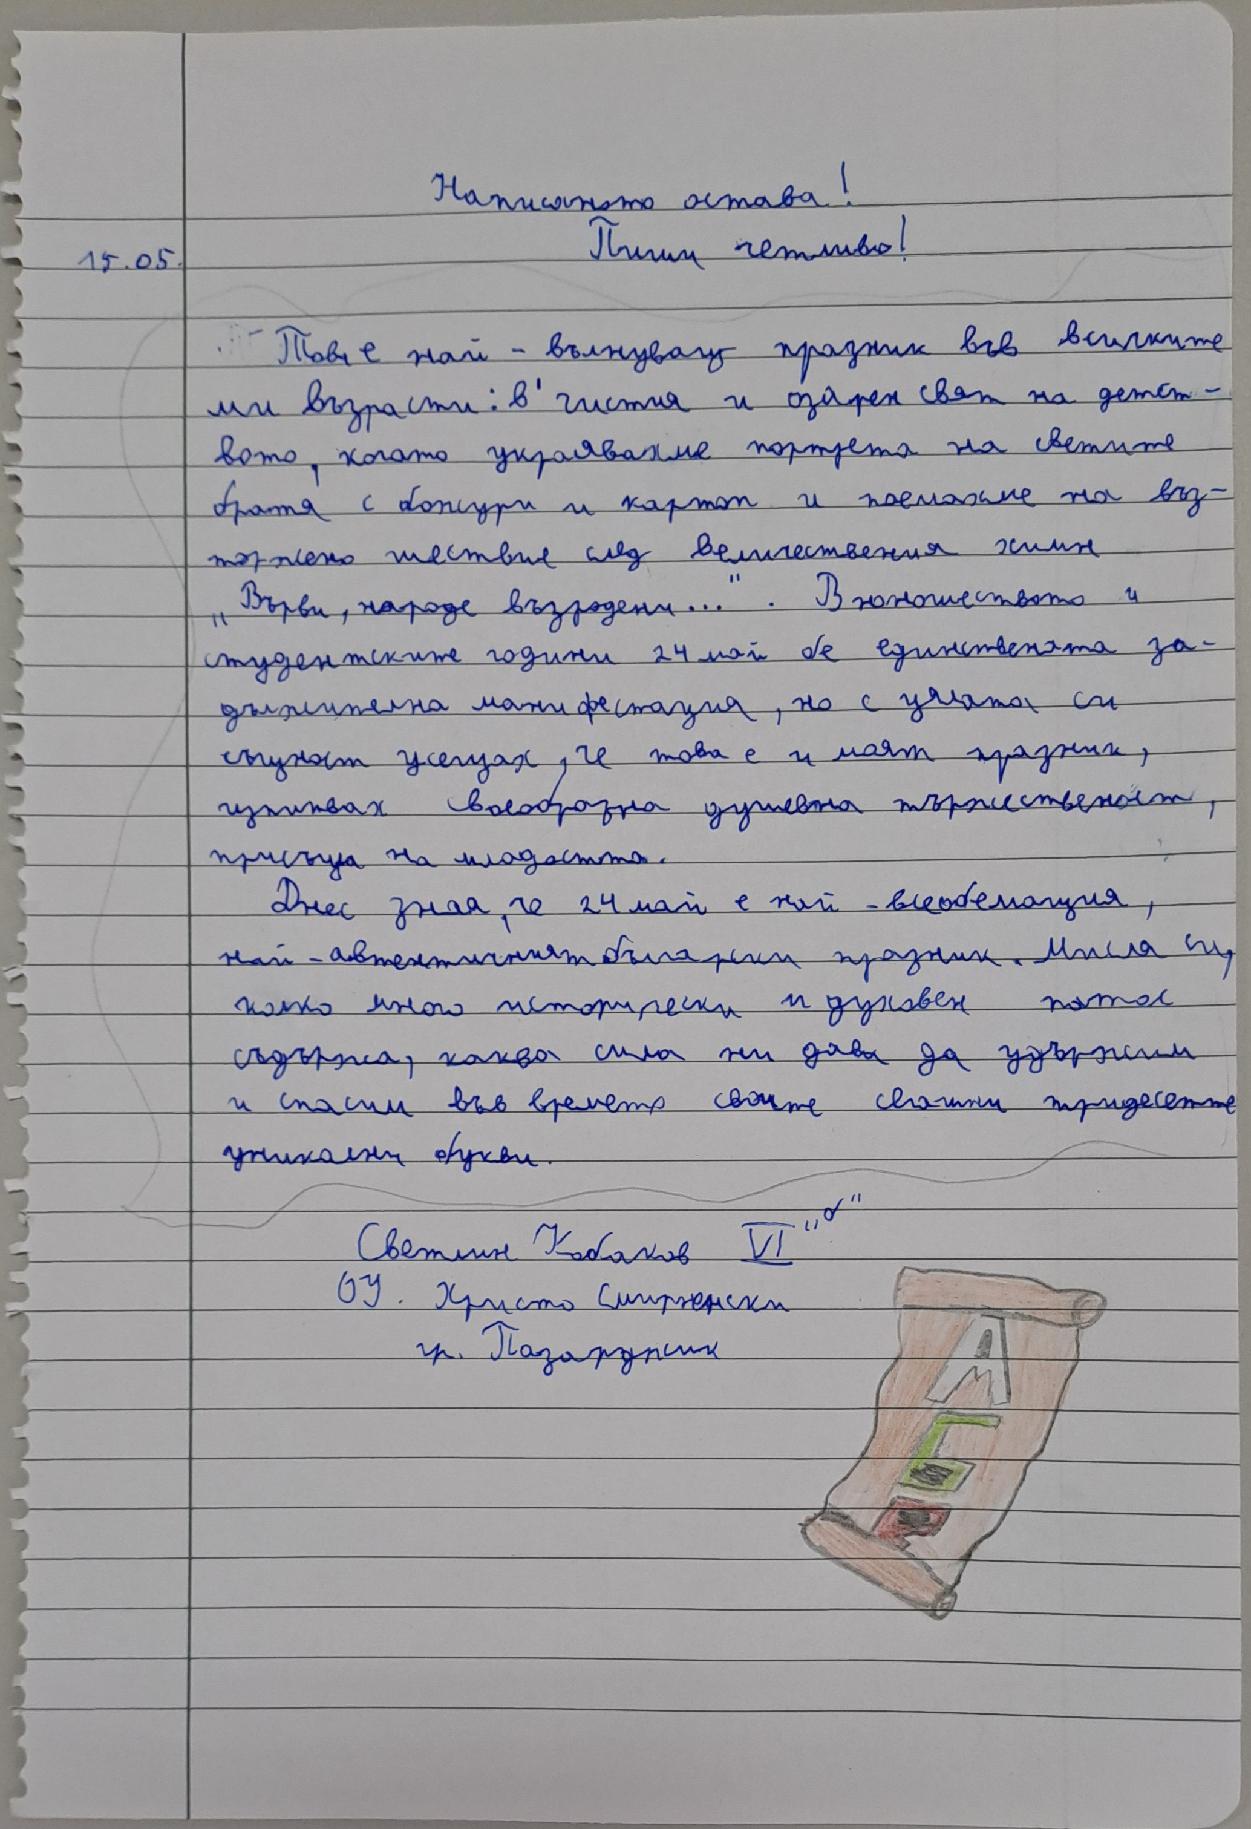 Написаното остава!
Пиши четливо!
15.05.
Това е най - вълнуващ празник във всичките
ми възрасти: в чистия и озарен свят на детст-
вото, когато украсявахме портрета на светите
братя с божури и картон и поемахме на въз-
торжено шествие след величествения химн
„Върви, народе възродени...". В юношеството и
студентските години 24 май бе единствената за-
дължителна манифестация, но с цялата си
същност усещах, че това е и моят празник,
изпитвах своеобразна душевна тържественост,
присъща на младостта.
Днес зная, че 24 май е най - всеобемащия,
най - автентичният български празник. Мисля си,
колко много исторически и духовен патос
съдържа, каква сила ни дава да удържим
и спасим във времето своите свещени тридесетте
уникални букви.
Светлин Кобаков VI „а"
ОУ. Христо Смирненски
гр. Пазарджик
А
Б
В